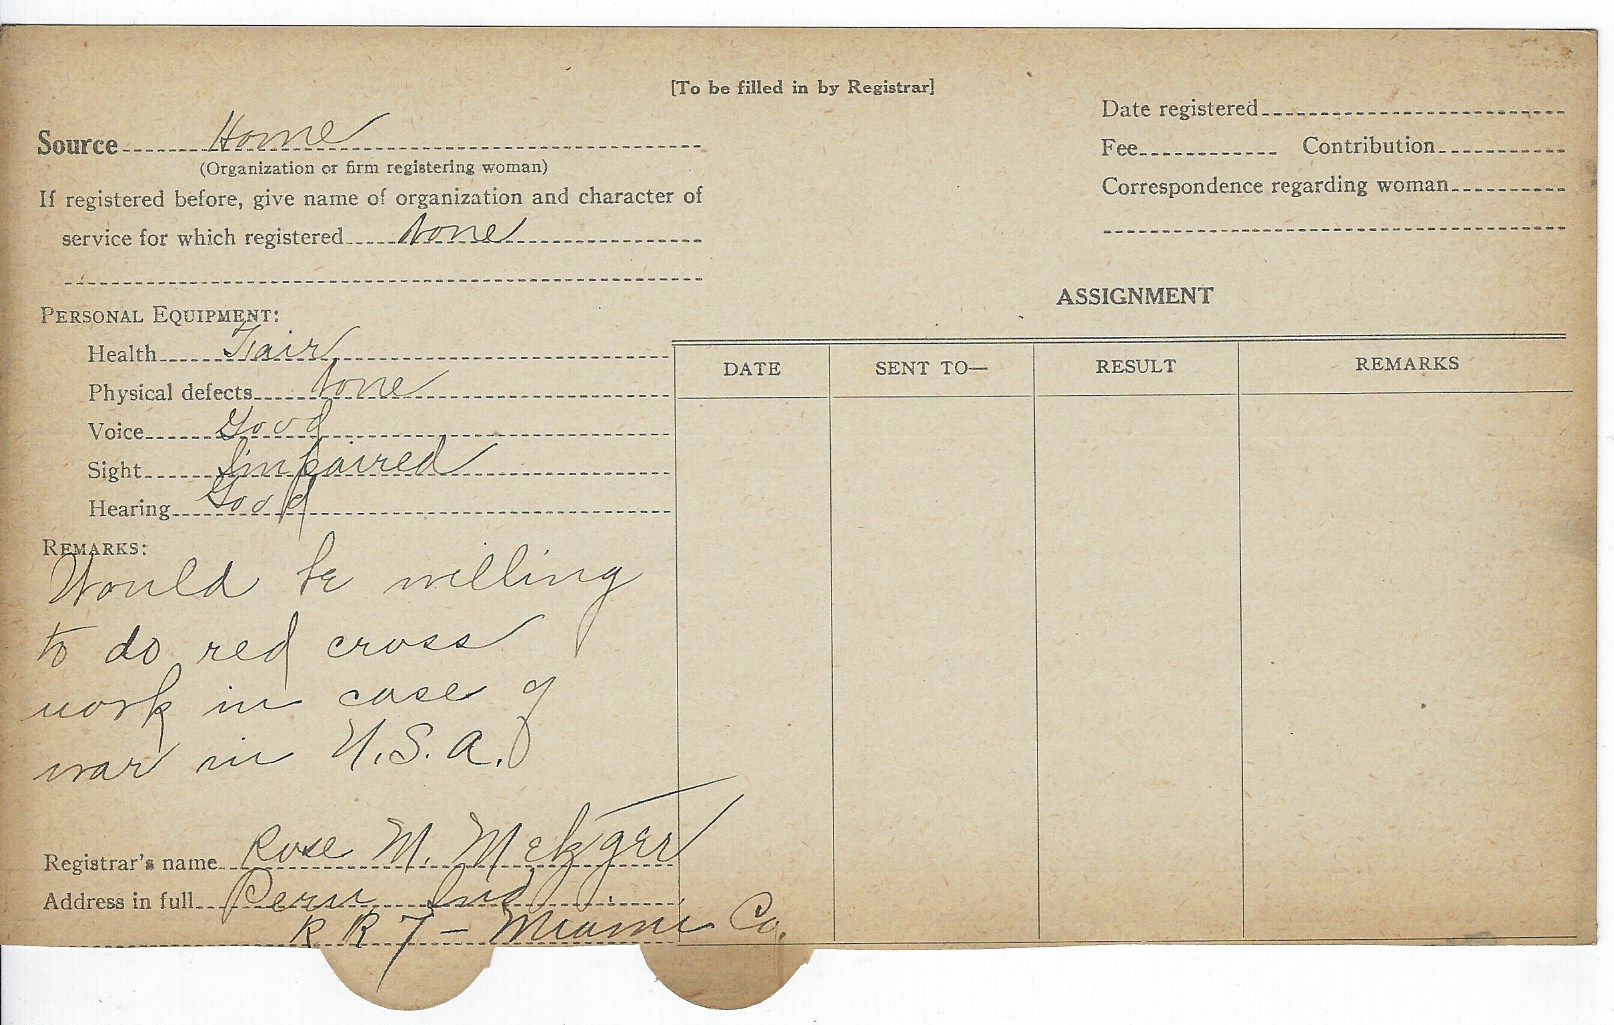 [To be filled in by Registrar]
Source Home
(Organization or firm registering woman)
If registered before, give name of organization and character of
service for which registered None
Date registered
Fee Contribution
Correspondence regarding woman
PERSONAL EQUIPMENT:
Health Fair
Physical defects None
Voice Good
Sight Impaired
Hearing Good
REMARKS:
Would be willing
to do red cross
work in case of
war in U.S.A.
Registrar's name Rose M. Metzger
Address in full Peru Ind.
R R 7 – Miami Co.
ASSIGNMENT
DATE SENT TO— RESULT REMARKS